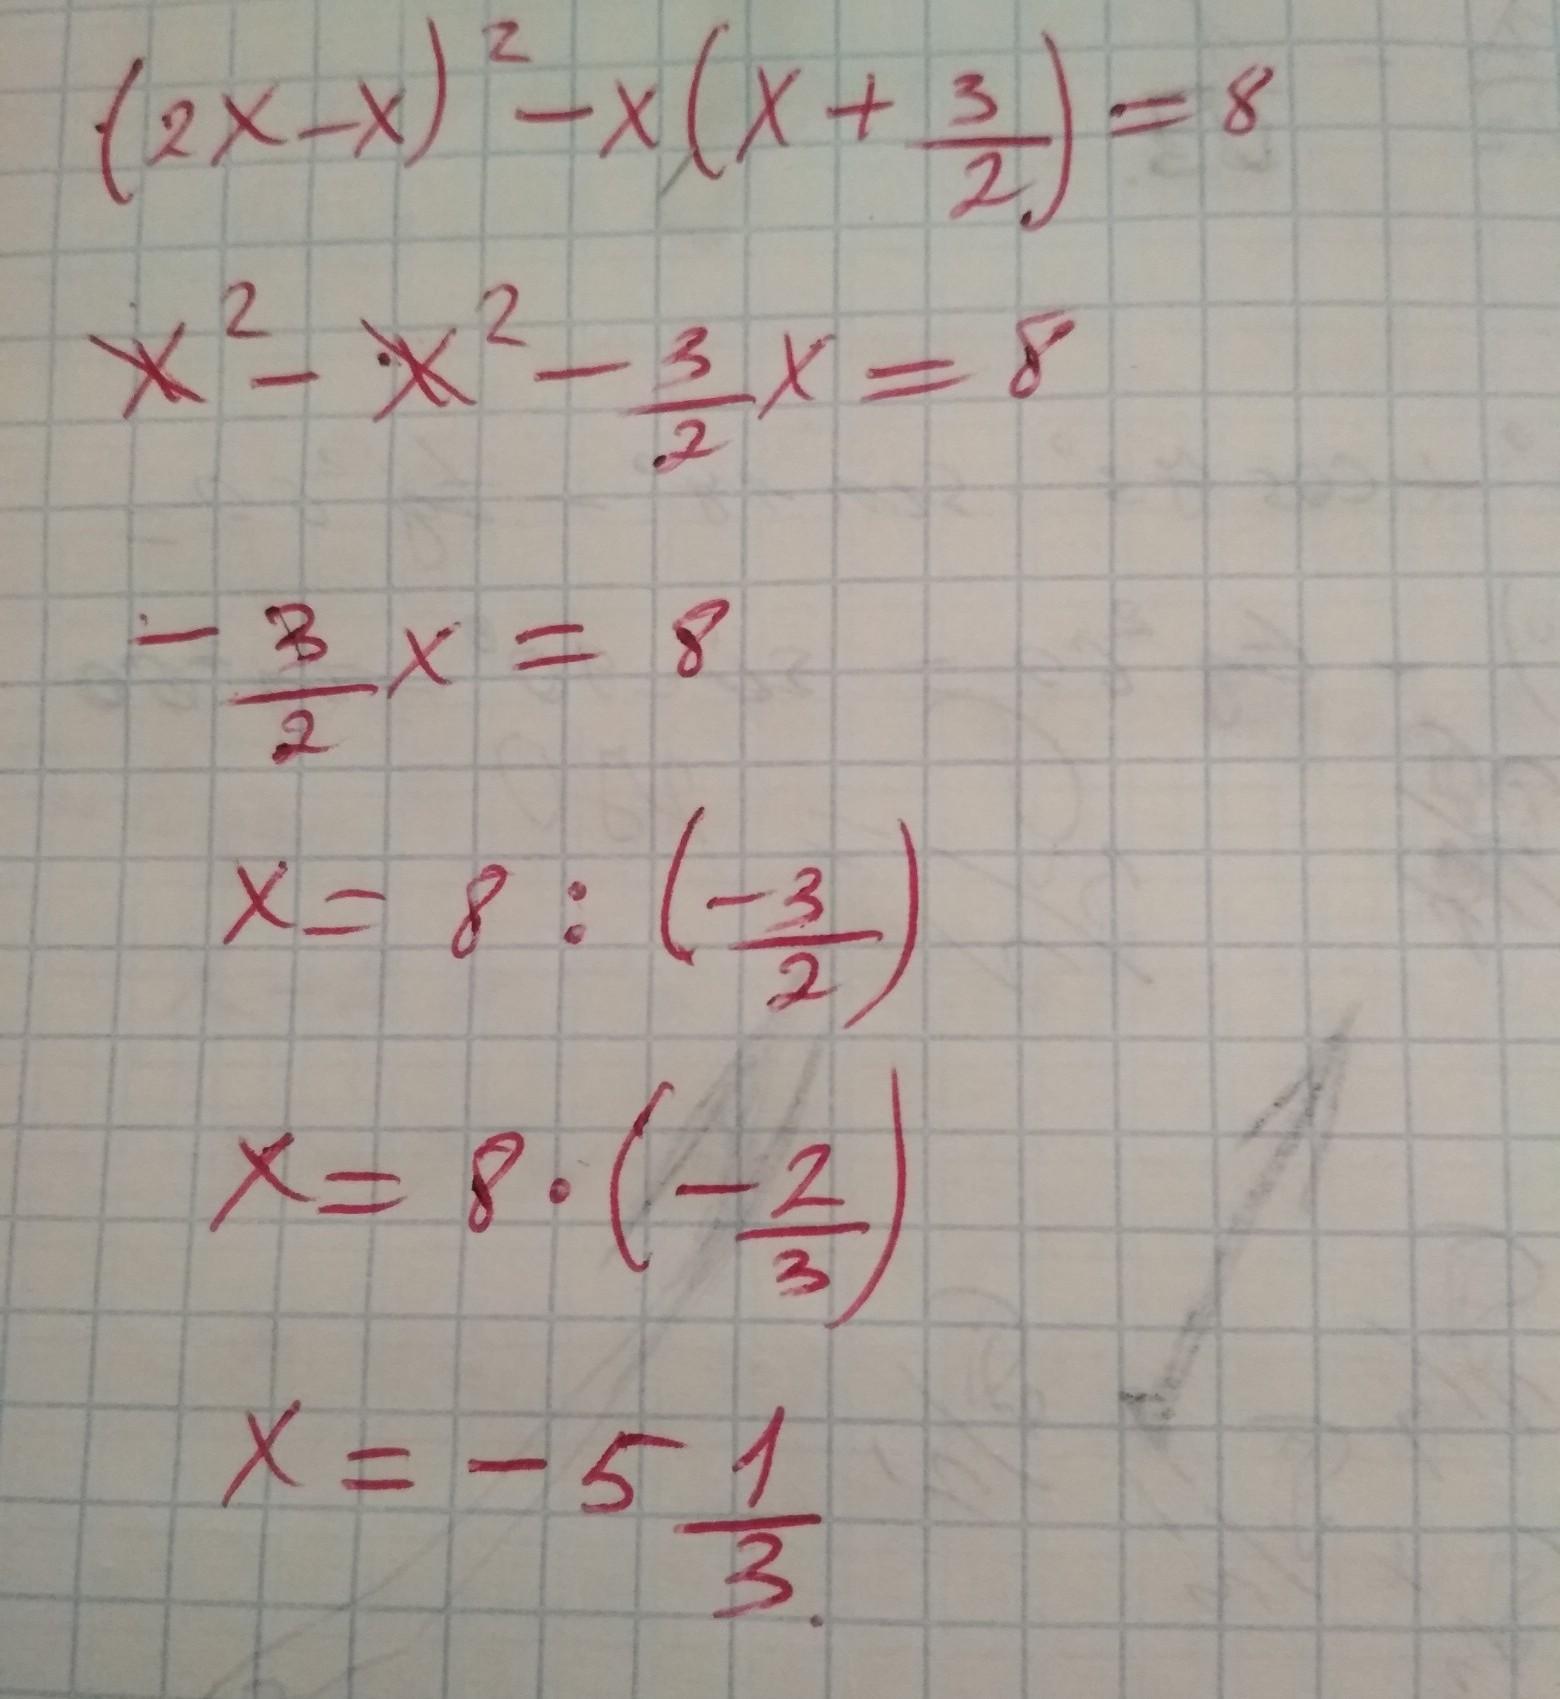 (2x-x)² - x(x + 3/2) = 8
x² - x² - 3/2 x = 8
- 3/2 x = 8
x = 8 : (-3/2)
x = 8 · (-2/3)
x = -5 1/3.